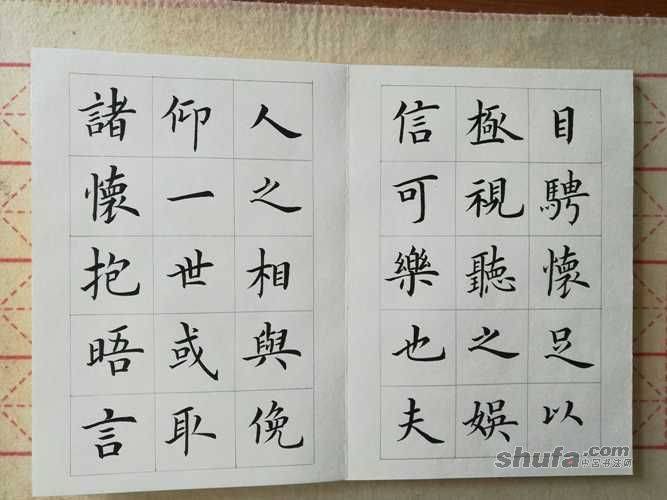 目騁懷足以
極視聽之娛
信可樂也夫
人之相與俛
仰一世或取
諸懷抱晤言
shufa.com
中国书法网